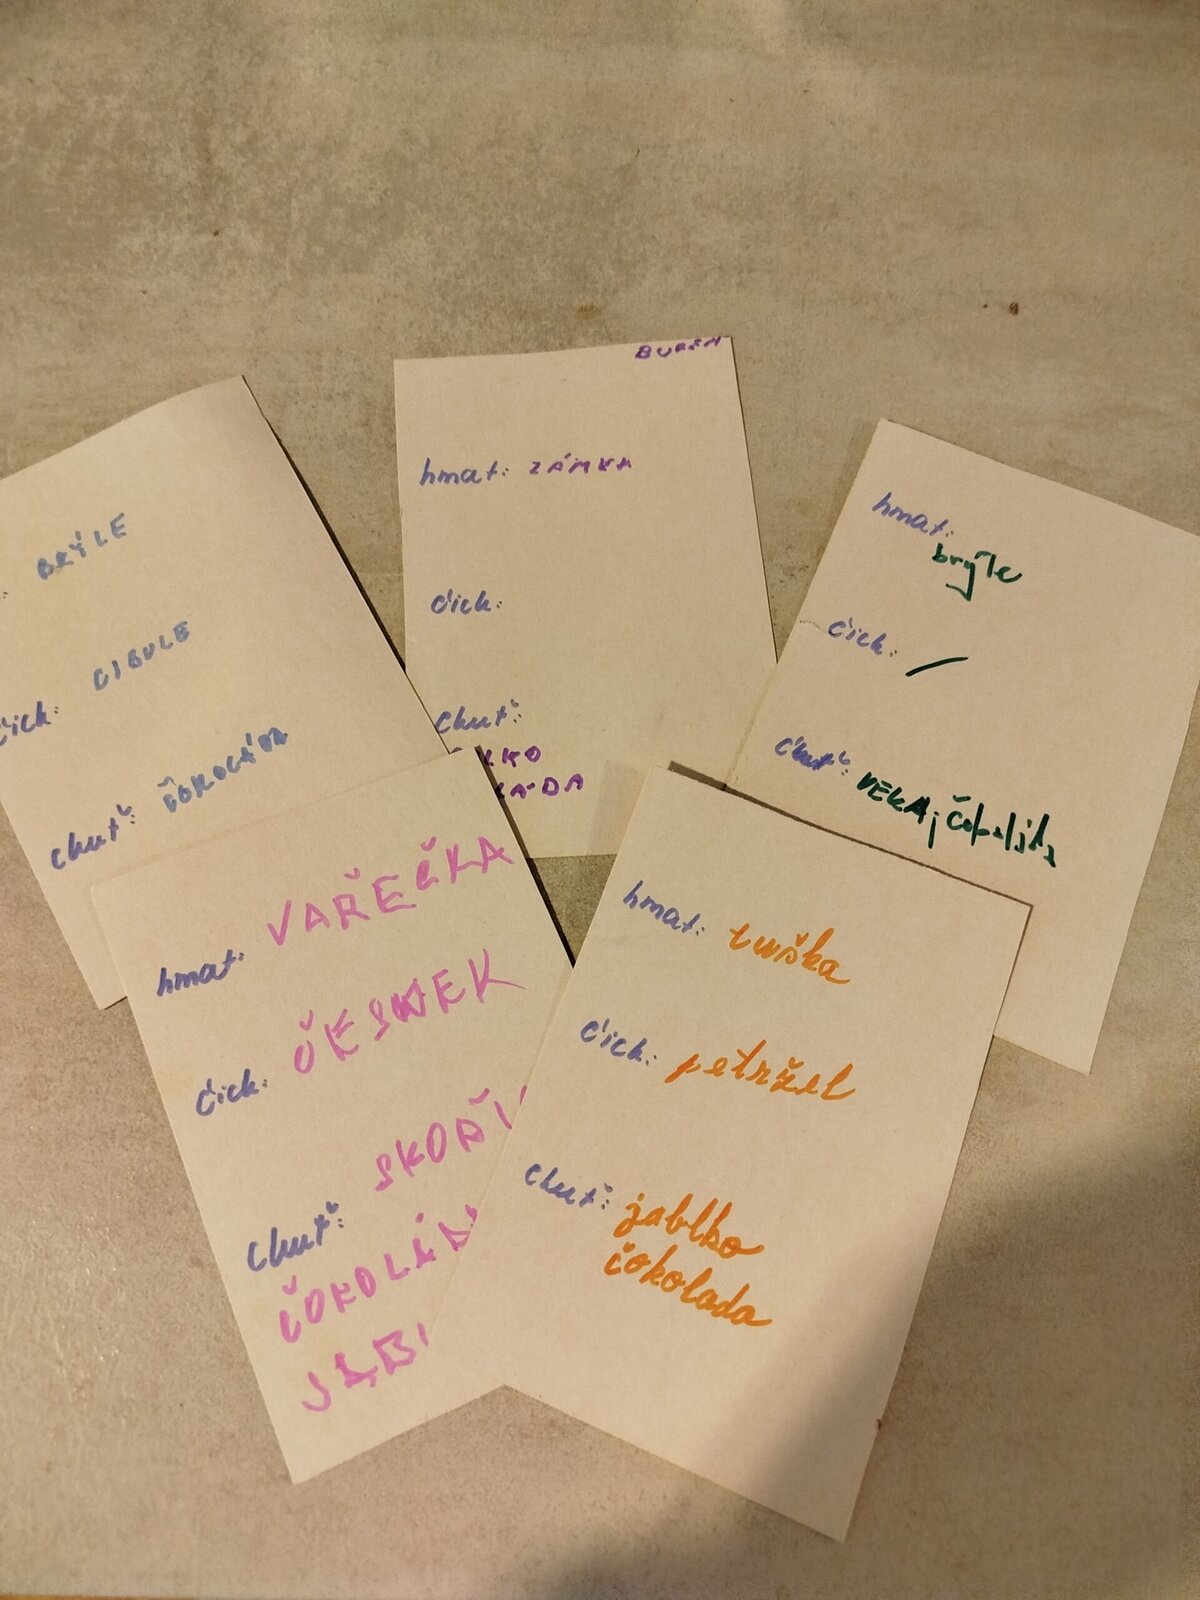 BRÝLE
čich: CIBULE
chuť: ČOKOLÁDA
hmat: ZÁMKA
čich:
chuť:
LKO
LÁDA
hmat:
brýle
čich: /
chuť:
hmat: VAŘEČKA
čich: ČESNEK
chuť: SKOŘI
ČOKOLÁD
JABL
hmat: tuška
čich: petržel
chuť: jablko
čokolada